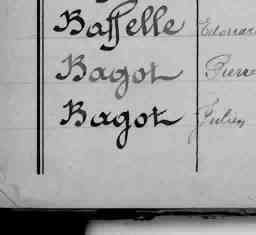 Baffelle Edouard
Bagot Pierre
Bagot Julien